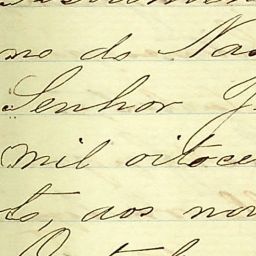 no do Nas
Senhor J
mil oitoce
to, aos nov